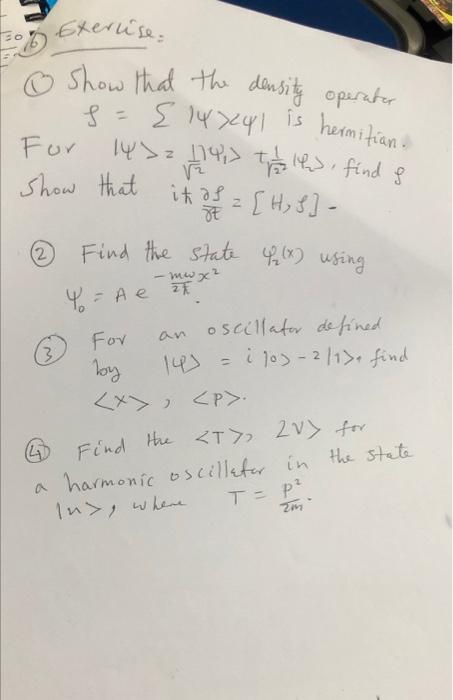 Exercise:
① Show that the density operator
ρ = Σ |ψ><ψ| is hermitian.
For |ψ> = 1/√2 |ψ₁> + 1/√2 |ψ₂>, find ρ
Show that iħ ∂ρ/∂t = [H, ρ] -
② Find the state ψ₂(x) using
ψ₀ = A e^(-mωx²/2ħ).
③ For an oscillator defined
by |ψ> = i |0> - 2|1>, find
<x>, <P>.
④ Find the <T>, <V> for
a harmonic oscillator in the state
|n>, where T = P²/2m.